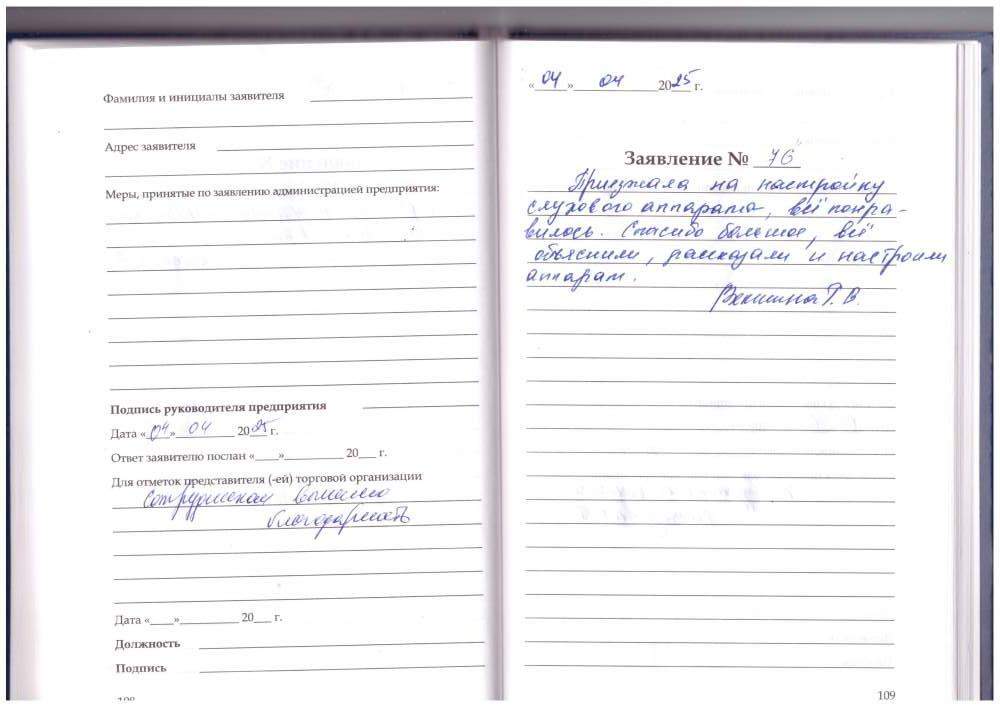 Фамилия и инициалы заявителя
Адрес заявителя
Меры, принятые по заявлению администрацией предприятия:
Подпись руководителя предприятия
Дата «04» 04 2025 г.
Ответ заявителю послан «____»__________ 20___ г.
Для отметок представителя (-ей) торговой организации
сотрудникам вынесено
благодарность
Дата «____»__________ 20___ г.
Должность
Подпись
«04» 04 2025 г.
Заявление № 76
Приезжала на настройку
слухового аппарата, всё понра-
вилось. Спасибо большое, всё
объяснили, рассказали и настроили
аппарат.
Г. В.
109